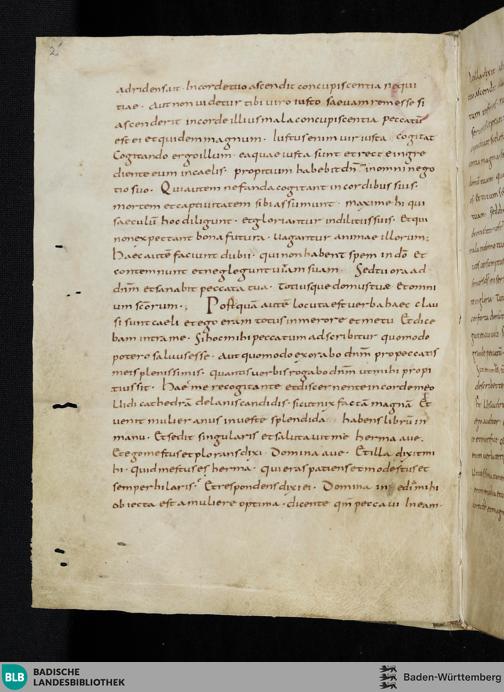 2
adridens ait. In corde tuo ascendit concupiscentia nequi
tiae. Aut non uidetur tibi uiro iusto saeuam rem esse si
ascenderit in corde illius mala concupiscentia peccatū
est ei et quidem magnum. Iustus enim uir iusta cogitat
Cogitando ergo illum eaquae iusta sunt et recte ingre
diente eum in caelis. propitium habebit dnm in omni nego
tio suo. Qui autem nefanda cogitant in cordibus suis.
mortem et captiuitatem sibi assumunt. maxime hi qui
saeculū hoc diligunt. et gloriantur in diuitiis suis. Et qui
non expectant bona futura. uagantur animae illorum;
Haec autē faciunt dubii. qui non habent spem in dō et
contemnunt et neglegunt uitam suam. Sed tu ora ad
dnm et sanabit peccata tua. totiusque domus tuae. et omni
um scōrum; Postquā autē locuta est uerba haec clau
si sunt caeli et ego eram totus in merore et metu. Et dice
bam intra me. Si hoc mihi peccatum adscribitur quomodo
potero saluus esse. aut quomodo exorabo dnm pro peccatis
meis plenissimis. quantis uerbis rogabo dnm ut mihi propi
tius sit. Haec me recogitante et discernente in corde meo
Uidi cathedrā de lanis candidis. sicut nix factā magnā. Et
uenit mulier anus in ueste splendida. habens librū in
manu. Et sedit singularis et salutauit me herma aue.
Et ego mestus et plorans dixi. Domina aue. Et illa dixit mi
hi. quid mestus es herma. qui eras patiens et modestus et
semper hilaris. Et respondens dixi ei. Domina mihi
obiecta est a muliere optima. dicente qm̄ peccaui in eam.
BLB
BADISCHE
LANDESBIBLIOTHEK
Baden-Württemberg